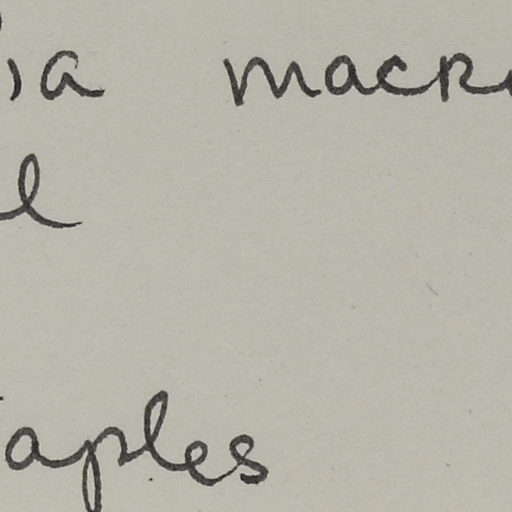 ia macr
l
aples